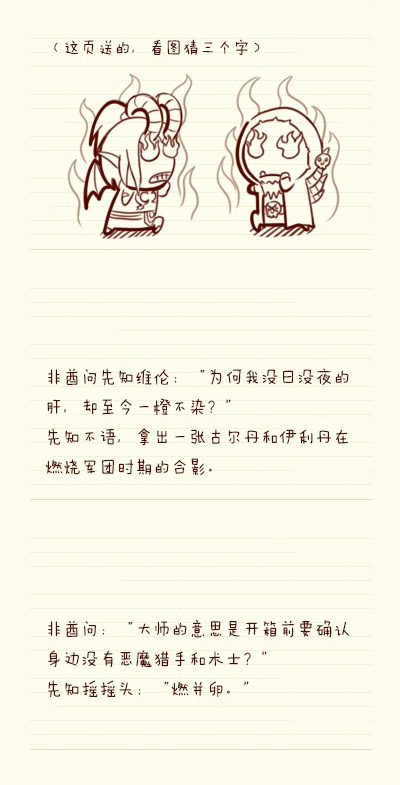 （这页送的，看图猜三个字）
非酋问先知维伦：“为何我没日没夜的
肝，却至今一橙不染？”
先知不语，拿出一张古尔丹和伊利丹在
燃烧军团时期的合影。
非酋问：“大师的意思是开箱前要确认
身边没有恶魔猎手和术士？”
先知摇摇头：“燃并卵。”